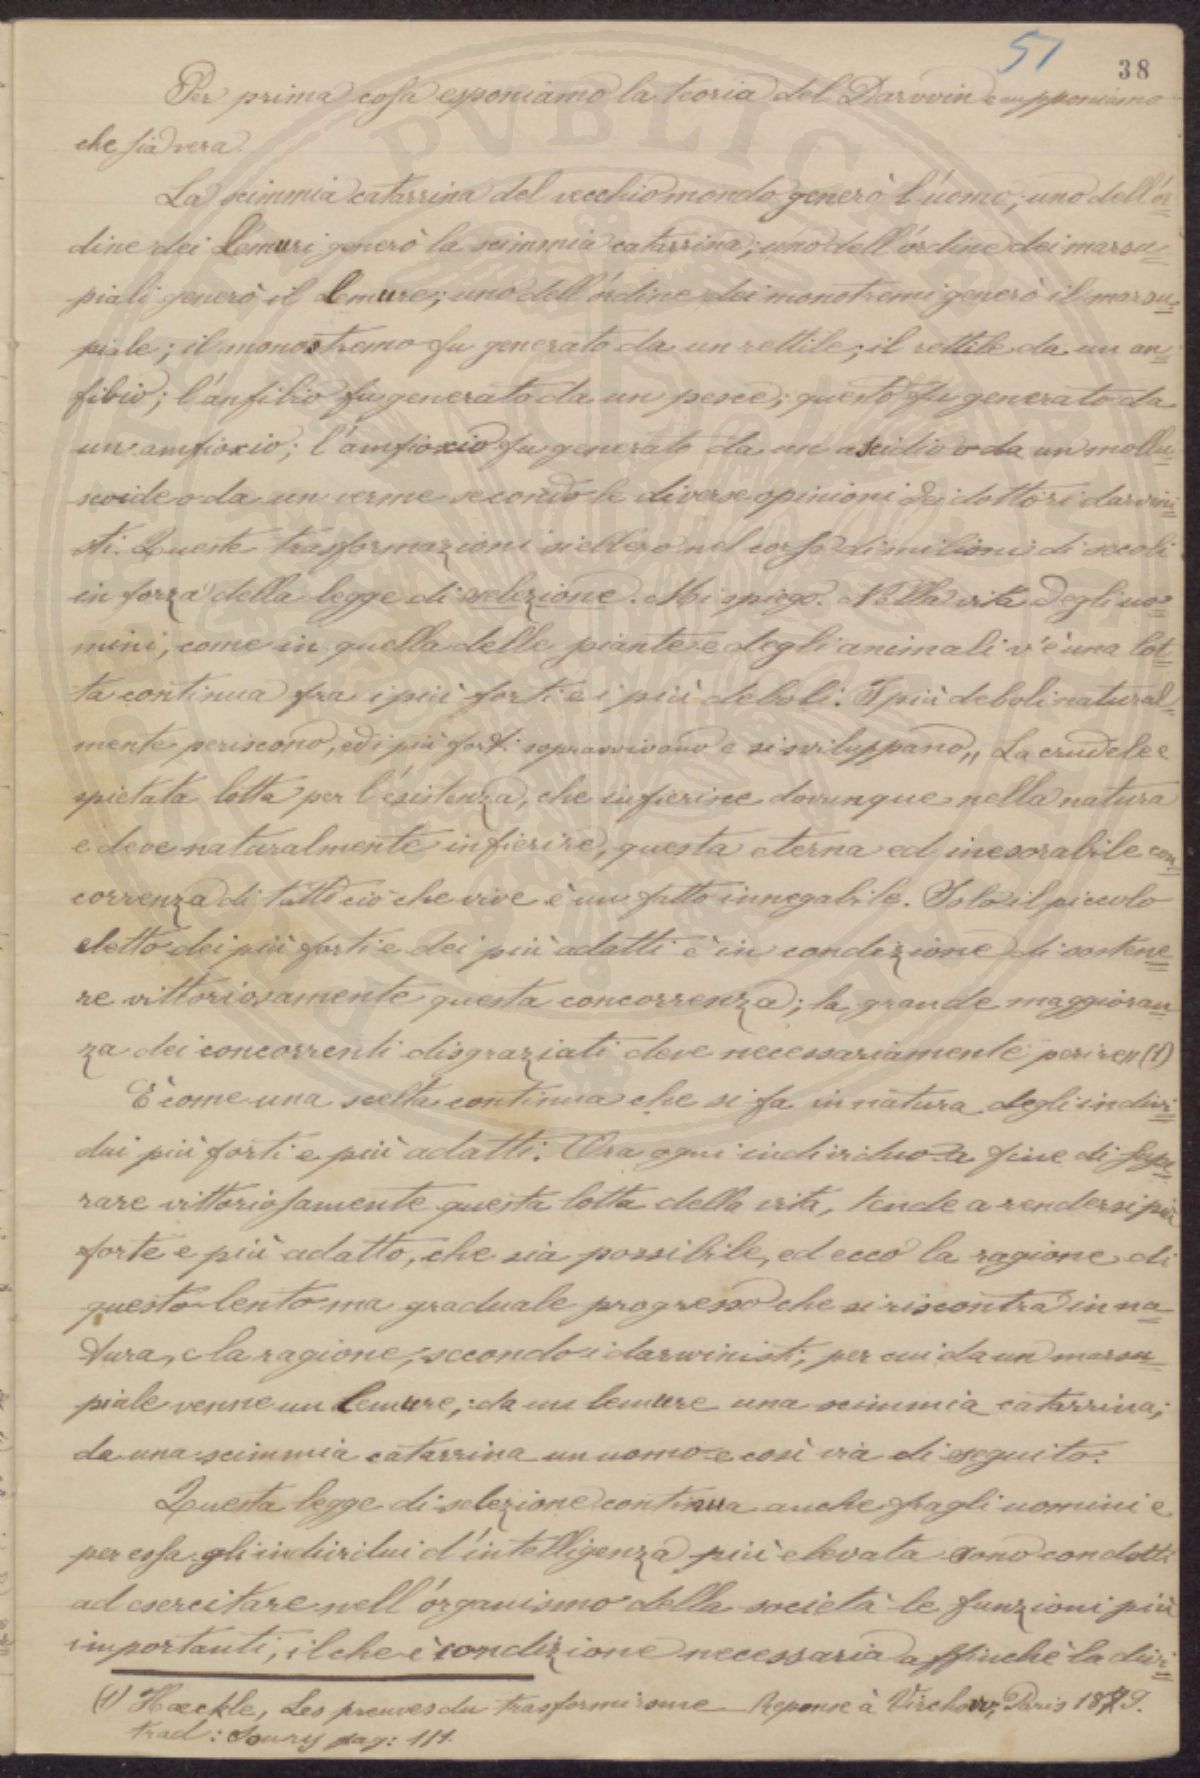 51
38
Per prima cosa esponiamo la teoria del Darvvin e supponiamo
che sia vera.
La scimmia catarrina del vecchio mondo generò l'uomo; uno dell'or=
dine dei Lemuri generò la scimmia catarrina; uno dell'ordine dei marsu=
piali generò il Lemure; uno dell'ordine dei monotremi generò il marsu=
piale; il monostremo fu generato da un rettile; il rettile da un an=
fibio; l'anfibio fu generato da un pesce; questo fu generato da
un amfioxio; l'amfioxio fu generato da un ascidio o da un mollu=
scoide o da un verme secondo le diverse opinioni dei dottori darvini=
sti. Queste trasformazioni si ebbero nel corso di milioni di secoli
in forza della legge di selezione. Mi spiego. Nella vita degli uo=
mini, come in quella delle piante e degli animali v'è una lot=
ta continua fra i più forti e i più deboli. I più deboli natural=
mente periscono, ed i più forti sopravvivono e si sviluppano „ La crudele e
spietata lotta per l'esistenza, che infierisce dovunque nella natura
e deve naturalmente infierire, questa eterna ed inesorabile con=
correnza di tutto ciò che vive è un fatto innegabile. Solo il piccolo
eletto dei più forti e dei più adatti è in condizione di sostene=
re vittoriosamente questa concorrenza; la grande maggioran=
za dei concorrenti disgraziati deve necessariamente perire „ (1)
È come una scelta continua che si fa in natura degli indivi=
dui più forti e più adatti. Ora ogni individuo a fine di supe=
rare vittoriosamente questa lotta della vita, tende a rendersi più
forte e più adatto, che sia possibile, ed ecco la ragione di
questo lento ma graduale progresso che si riscontra in na=
tura, e la ragione, secondo i darwinisti, per cui da un marsu=
piale venne un lemure; da un lemure una scimmia catarrina;
da una scimmia catarrina un uomo e così via di seguito.
Questa legge di selezione continua anche fra gli uomini e
per essa gli individui d'intelligenza più elevata sono condotti
ad esercitare nell'organismo della società le funzioni più
importanti, il che è condizione necessaria affinchè la divi=
(1) Hæckle, Les preuves du trasformisme Reponse à Virchow, Paris 1879.
trad: Soury pag: 111.